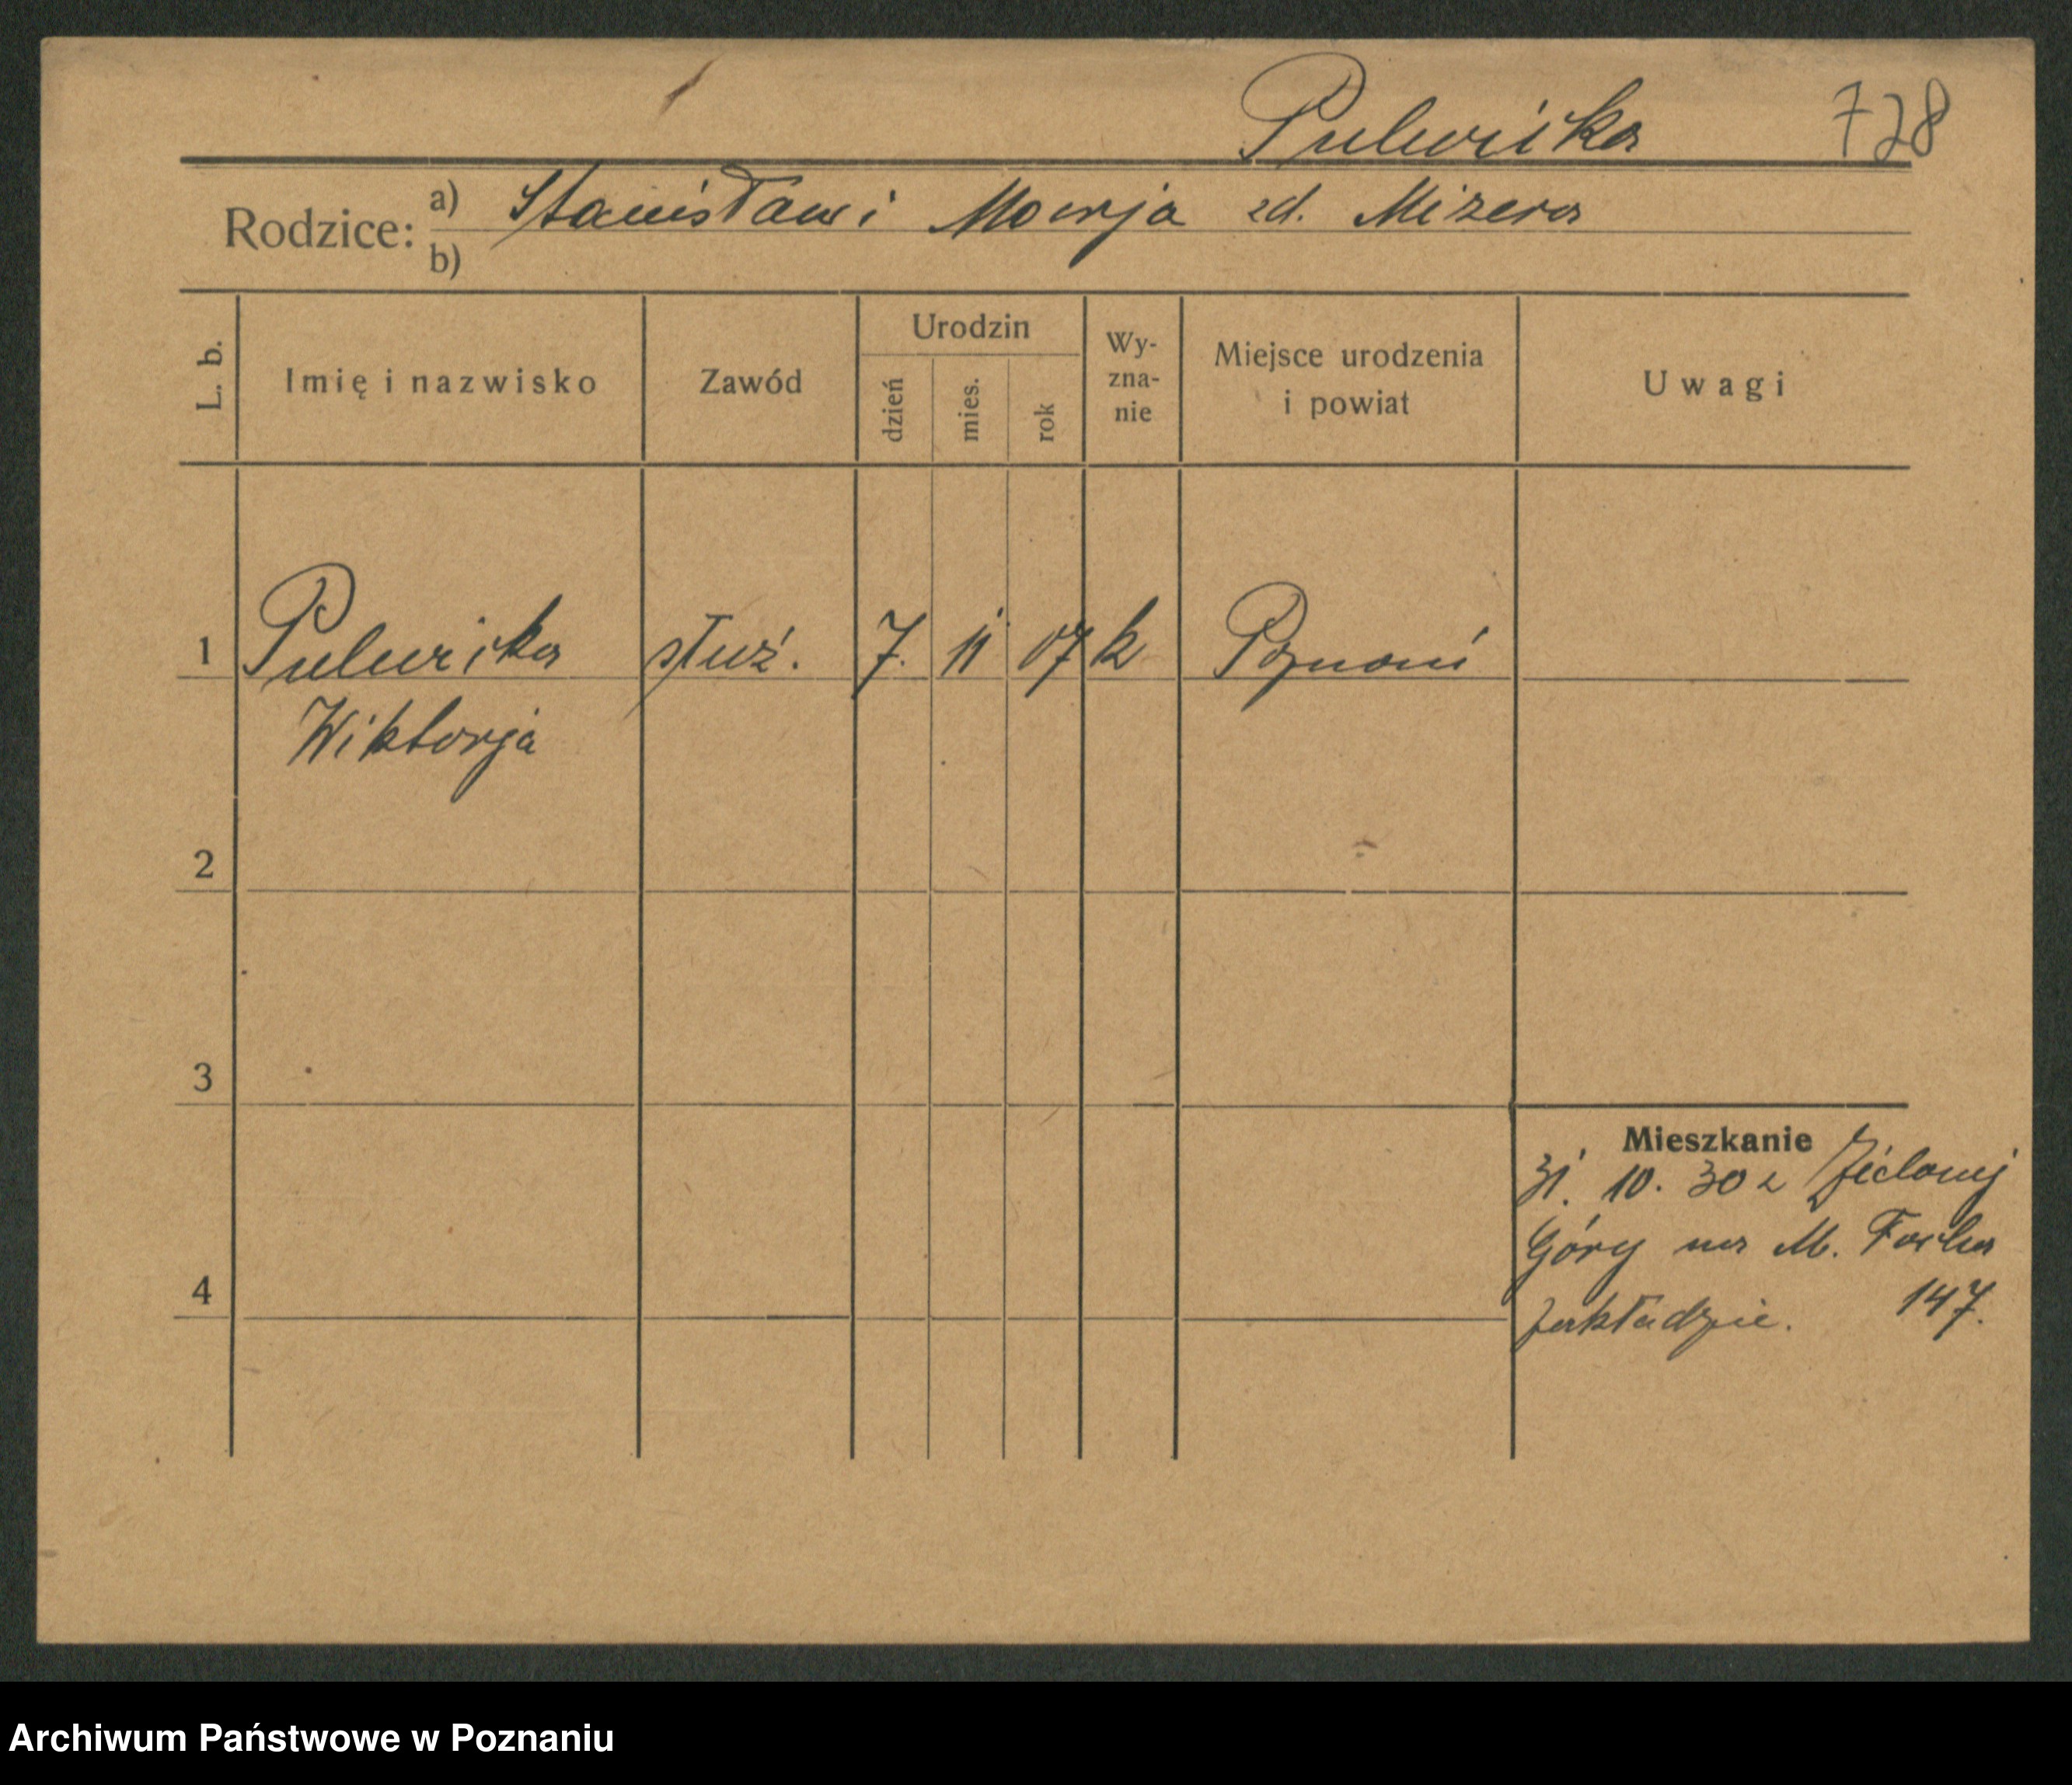 Pulwicka 728
Rodzice: a) Stanisław i Marja zd. Mizera
b)
L. b. Imię i nazwisko Zawód Urodzin dzień mies. rok Wy-zna-nie Miejsce urodzenia i powiat Uwagi
1 Pulwicka służ. 7. 11 07 k Poznań
Wiktorja
2
3
Mieszkanie
31. 10. 30 z Zielonej
Góry na M. Focha
4
Zakładzie. 147.
Archiwum Państwowe w Poznaniu